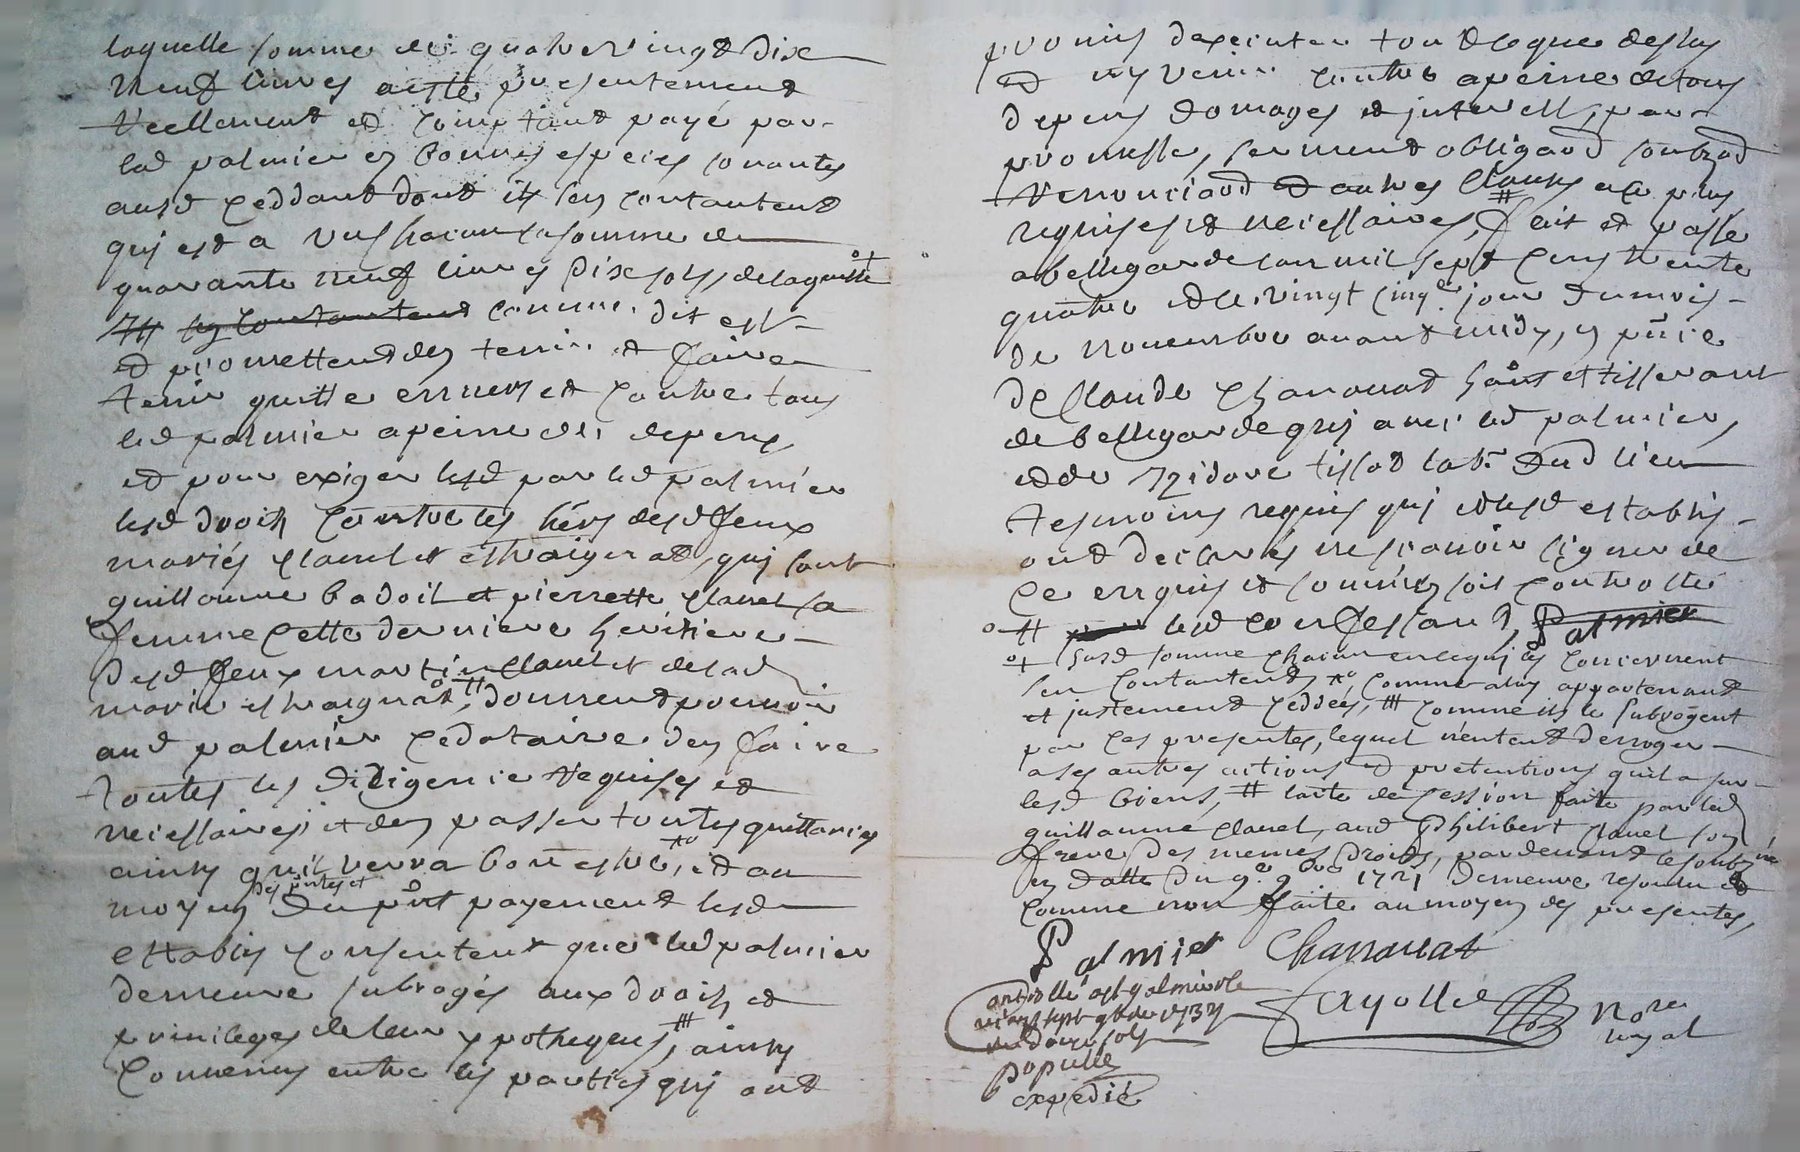 laquelle somme de quatre vingt dix
neuf livres a esté presentement
reellement et comptant payé par
led palmier en bonnes especes sonantes
ausd ceddant dont ils sen contantent
quj est a un chacun la somme de
quarante neuf livres dix sols, de laquelle
ils sen contantent comme dit est
et promettent den tenir et faire
tenir quitte envers et contre tous
led palmier a peine de depens
et pour exiger lesd par led palmier
lesd droits contre les hérs desd feux
mariés clavel et estraignat, quj sont
guillaume badoil et pierrette clavel sa
femme cette derniere heritiere
desd feux martin clavel et de lad
marie estraignat, donnent pouvoir
aud palmier cedataire den faire
toutes les diligence requises et
necessaires et den passer toutes quittances
ainsy quil verra bon estre, et au
des pntes et
moyen du pnt payement lesd
establis consentent que led palmier
demeure subrogés aux droits et
privileges de leur ypotheques, ainsy
convenus entre les parties quj ont
promis dexecuter tout ce que dessus
et ny venir contre a peine de tous
depens domages et interests, par
promesse, serment obligaod soubzod
renonciaod et autres clauses a ce plus
requises et necessaires, fait et passé
a bellegarde lan mil sept cens trente
quatre et le vingt cinqe jour du mois
de novembre avant midy, en pnce
de claude chanouat hant et tisserant
de bellegarde quj avec led palmier,
et de izidore tissot labr dud lieu
tesmoins requis quj et lesd establis
ont declarés ne scavoir signer de
ce enquis et sommés sois controllé
lesd confessant, Palmier
susd somme chacun en ce quj les concernent
sen contantent comme a eux appartenant
et justement ceddées, comme ils le subrogent
par ces presentes, lequel nentent derroger
a ses autres actions et pretentions quil a sur
lesd biens, lacte de cession faite par led
guillaume clavel, aud Philibert clavel son
frere des memes droits, pardevant le soubzné
en datte du 9e 9bre 1721 demeure resolu et
comme non faite au moyen des presentes,
Palmier Chanouat
controllé a st galmier le
vingt sept 9bre 1734
recu douze sols
Populle
expedié
Fayolle Nore
royal